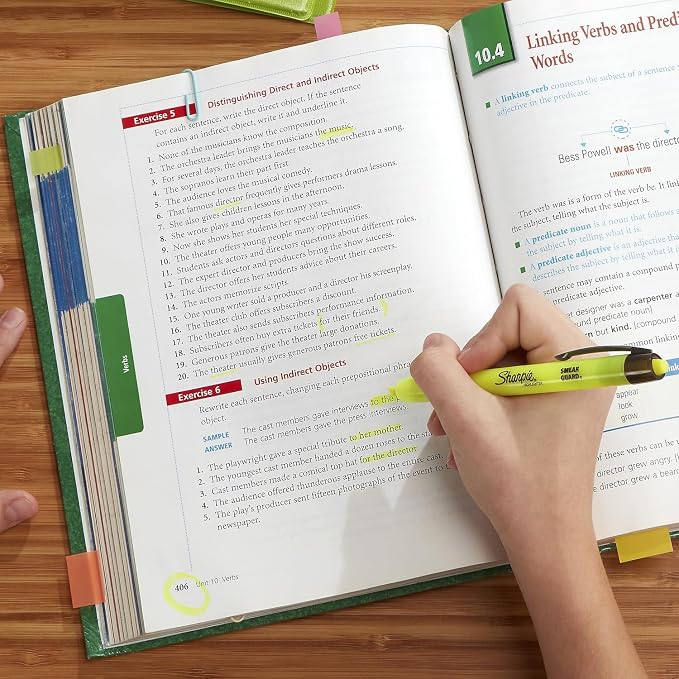 Exercise 5 Distinguishing Direct and Indirect Objects
For each sentence, write the direct object. If the sentence
contains an indirect object, write it and underline it.
1. None of the musicians know the composition.
2. The orchestra leader brings the musicians the music.
3. For several days, the orchestra leader teaches the orchestra a song.
4. The sopranos learn their part first.
5. The audience loves the musical comedy.
6. That famous director frequently gives performers drama lessons.
7. She also gives children lessons in the afternoon.
8. She wrote plays and operas for many years.
9. Now she shows her students her special techniques.
10. The theater offers young people many opportunities.
11. Students ask actors and directors questions about different roles.
12. The expert director and producers bring the show success.
13. The director offers her students advice about their careers.
14. The actors memorize scripts.
15. One young writer sold a producer and a director his screenplay.
16. The theater club offers subscribers a discount.
17. The theater also sends subscribers performance information.
18. Subscribers often buy extra tickets for their friends.
19. Generous patrons give the theater large donations.
20. The theater usually gives generous patrons free tickets.
Exercise 6 Using Indirect Objects
Rewrite each sentence, changing each prepositional phrase
object.
SAMPLE The cast members gave interviews to the
ANSWER The cast members gave the press interviews.
1. The playwright gave a special tribute to her mother.
2. The youngest cast member handed a dozen roses to the
3. Cast members made a comical top hat for the director.
4. The audience offered thunderous applause to the entire cast.
5. The play's producer sent fifteen photographs of the event to
newspaper.
406 Unit 10 Verbs
Verbs
10.4 Linking Verbs and Predi
Words
A linking verb connects the subject of a sentence
adjective in the predicate.
Bess Powell was the director
LINKING VERB
The verb was is a form of the verb be. It link
the subject, telling what the subject is.
A predicate noun is a noun that follows a
the subject by telling what it is.
A predicate adjective is an adjective tha
describes the subject by telling what it is
A sentence may contain a compound p
predicate adjective.
designer was a carpenter
pound predicate noun]
but kind. [compound
Sharpie SMEAR GUARD
appear
look
grow
of these verbs can be u
director grew angry. [
director grew a beard